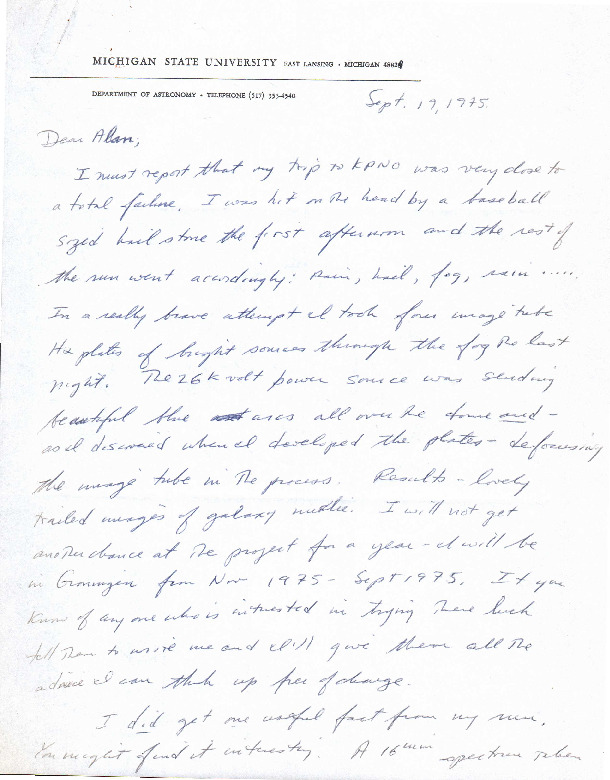 MICHIGAN STATE UNIVERSITY EAST LANSING • MICHIGAN 48824
DEPARTMENT OF ASTRONOMY • TELEPHONE (517) 353-4540
Sept. 19, 1975
Dear Alan,
I must report that my trip to KPNO was very close to
a total failure. I was hit on the head by a baseball
sized hail stone the first afternoon and the rest of
the run went accordingly: Rain, hail, fog, rain .....
In a really brave attempt I took four image tube
Hα plates of bright sources through the fog the last
night. The 26 k volt power source was sending
beautiful blue arcs all over the dome and -
as I discovered when I developed the plates - defocusing
the image tube in the process. Results - lovely
trailed images of galaxy nuclei. I will not get
another chance at the project for a year - I will be
in Groningen from Nov 1975 - Sept 1975. If you
know of any one who is intrested in trying there luck
tell them to write me and I'll give them all the
advice I can think up free of charge.
I did get one useful fact from my run.
You might find it interesting. A 16mm spectrum taken